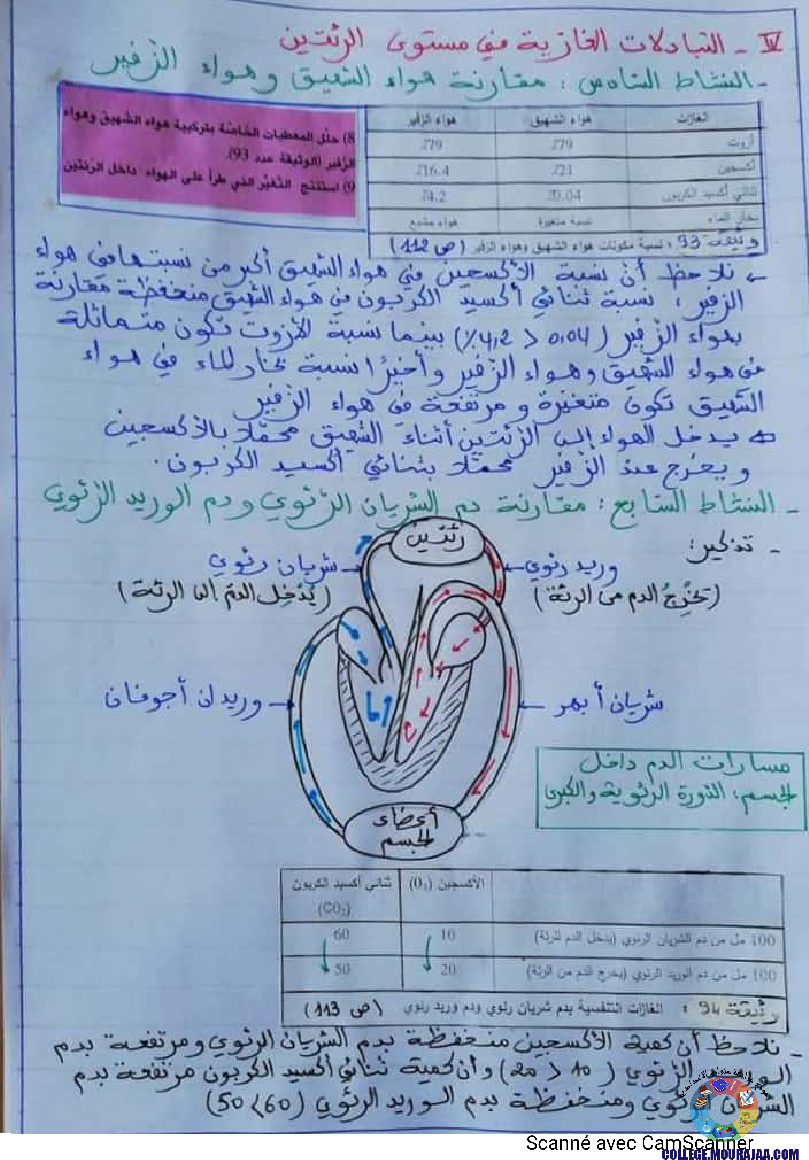 IV - التبادلات الغازية في مستوى الرئتين
- النشاط السادس : مقارنة هواء الشهيق وهواء الزفير
8) حلّل المعطيات الخاصّة بتركيبة هواء الشهيق وهواء
الزفير (الوثيقة عدد 93).
9) استنتج التغيّر الذي طرأ على الهواء داخل الرئتين
الغازات هواء الشهيق هواء الزفير
أزوت %79 %79
أكسجين %21 %16.4
ثنائي أكسيد الكربون %0.04 %4.2
بخار الماء نسبة متغيرة هواء مشبع
وثيقة 93 : نسبة مكونات هواء الشهيق وهواء الزفير (ص 112)
نلاحظ أنّ نسبة الأكسجين في هواء الشهيق أكبر من نسبتها في هواء
الزفير ، نسبة ثنائي أكسيد الكربون في هواء الشهيق منخفظة مقارنة
بهواء الزفير (0,04 < 4,2%) بينما نسبة الأزوت تكون متماثلة
في هواء الشهيق وهواء الزفير وأخيرًا نسبة بخار الماء في هواء
الشهيق تكون متغيرة و مرتفعة في هواء الزفير
يدخل الهواء إلى الرئتين أثناء الشهيق محمّلا بالأكسجين
ويخرج عند الزفير محمّلا بثنائي أكسيد الكربون.
- النشاط السابع : مقارنة دم الشريان الرئوي ودم الوريد الرئوي
- تذكير :
رئتين
شريان رئوي
وريد رئوي
(يُدْخِل الدمّ إلى الرئة)
(يُخْرِجُ الدم من الرئة)
وريدان أجوفان
شريان أبهر
مسارات الدم داخل
الجسم، الدورة الرئوية والكبرى
أعضاء
الجسم
الأكسجين (O₂) ثنائي أكسيد الكربون
(CO₂)
100 مل من دم الشريان الرئوي (يدخل الدم للرئة) 10 60
100 مل من دم الوريد الرئوي (يخرج الدم من الرئة) 20 50
وثيقة 94 : الغازات التنفسية بدم شريان رئوي ودم وريد رئوي (ص 113)
- نلاحظ أن كمية الأكسجين منخفظة بدم الشريان الرئوي ومرتفعة بدم
الوريد الرئوي (10 < 20) وأن كمية ثنائي أكسيد الكربون مرتفعة بدم
الشريان الرئوي ومنخفظة بدم الوريد الرئوي (60 > 50)
Scanné avec CamScanner
COLLEGE.MOURAJAA.COM